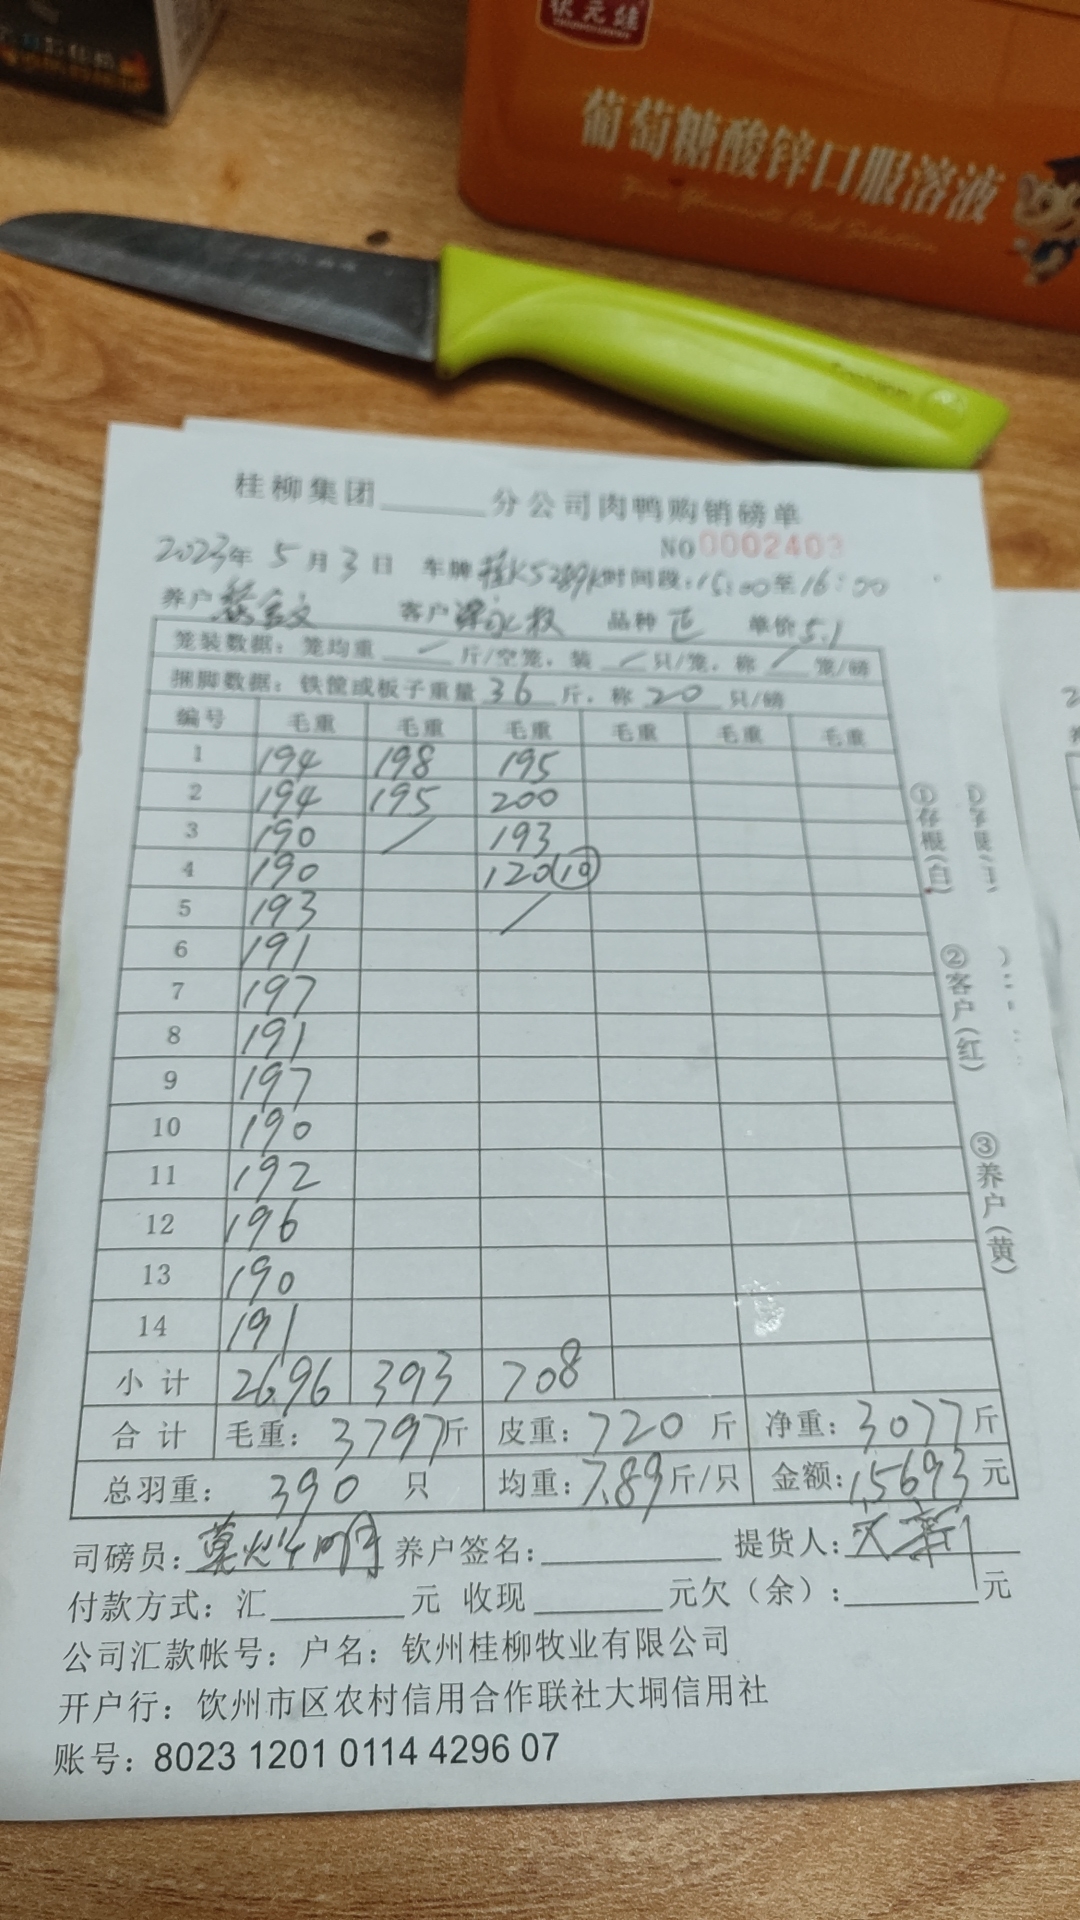 状元娃
葡萄糖酸锌口服溶液
桂柳集团______分公司肉鸭购销磅单
NO 0002403
2023年 5月3日 车牌桂K5289K时间段:15:00至16:00
养户 客户梁永权 品种 单价5.1
笼装数据：笼均重 / 斤/空笼，装 / 只/笼，称 / 笼/磅
捆脚数据：铁筐或板子重量 36 斤，称 20 只/磅
编号 毛重 毛重 毛重 毛重 毛重 毛重
1 194 198 195
2 194 195 200
3 190 / 193
4 190 120(10)
5 193 /
6 191
7 197
8 191
9 197
10 190
11 192
12 196
13 190
14 191
小计 2696 393 708
合计 毛重：3797斤 皮重：720 斤 净重：3077斤
总羽重：390 只 均重：7.89斤/只 金额：15693元
司磅员： 养户签名：______ 提货人：
付款方式：汇______元 收现______元欠（余）：______元
公司汇款帐号：户名：钦州桂柳牧业有限公司
开户行：饮州市区农村信用合作联社大垌信用社
账号：8023 1201 0114 4296 07
①存根（白）
②客户（红）
③养户（黄）